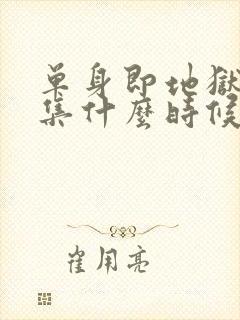 單身即地獄
集什麼時候
崔用亮